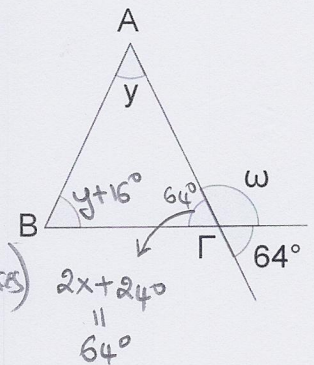 A
y
y+16°
64°
ω
B
Γ
64°
2x+24°
=
64°